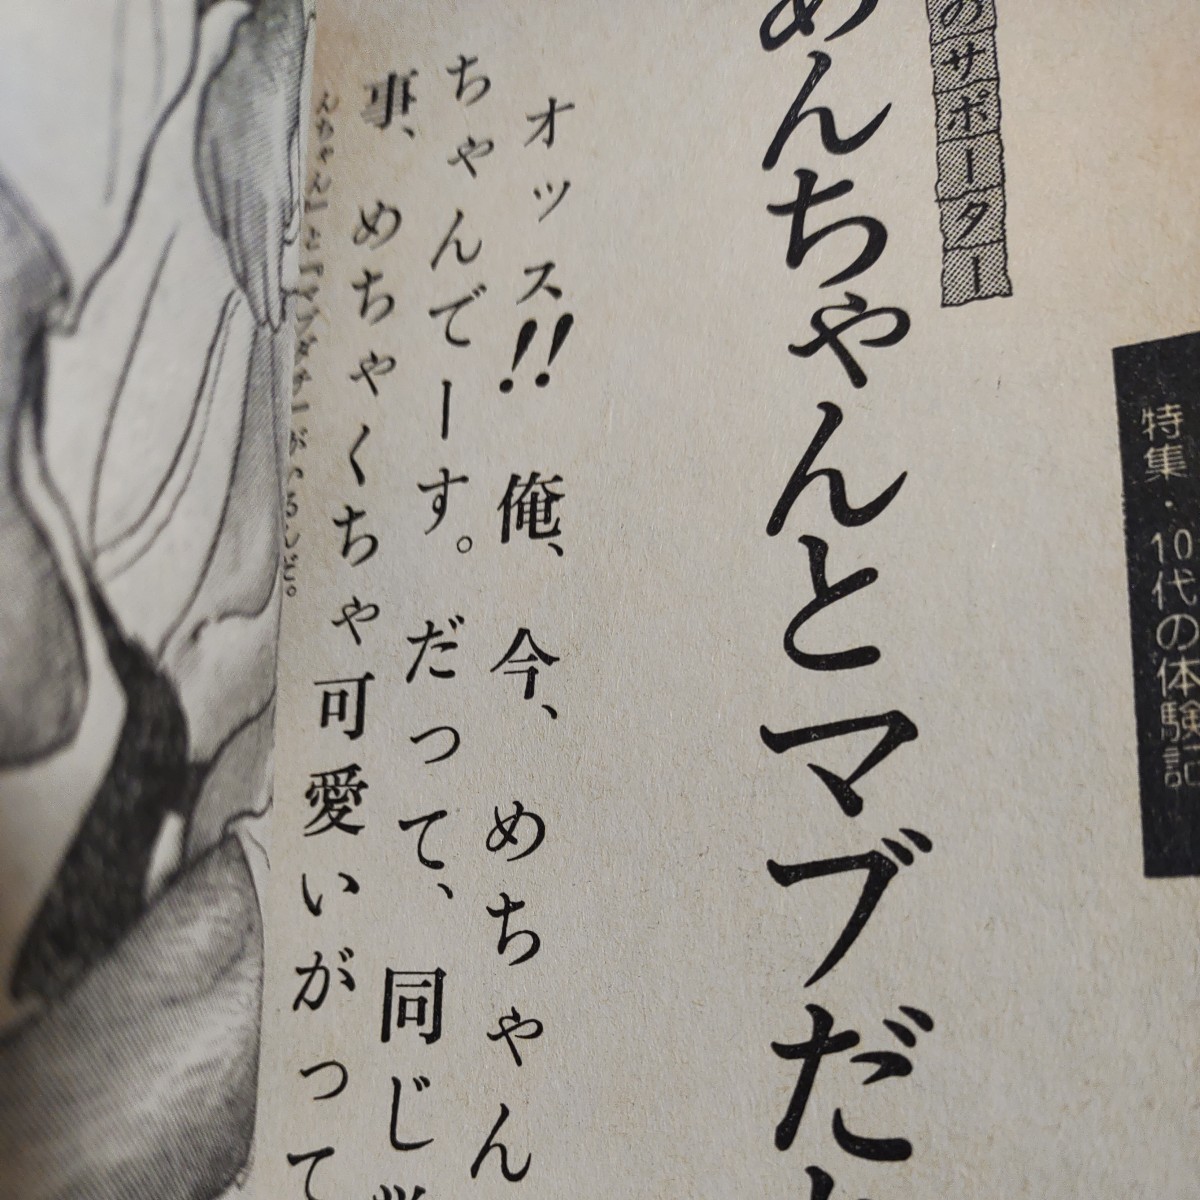 特集・10代の体験記
のサポーター
めんちゃんとマブだ
オッス!!俺、今、めちゃん
ちゃんでーす。だって、同じ
事、めちゃくちゃ可愛いがって
んちゃん」と『マブダチ』が
るんだ。